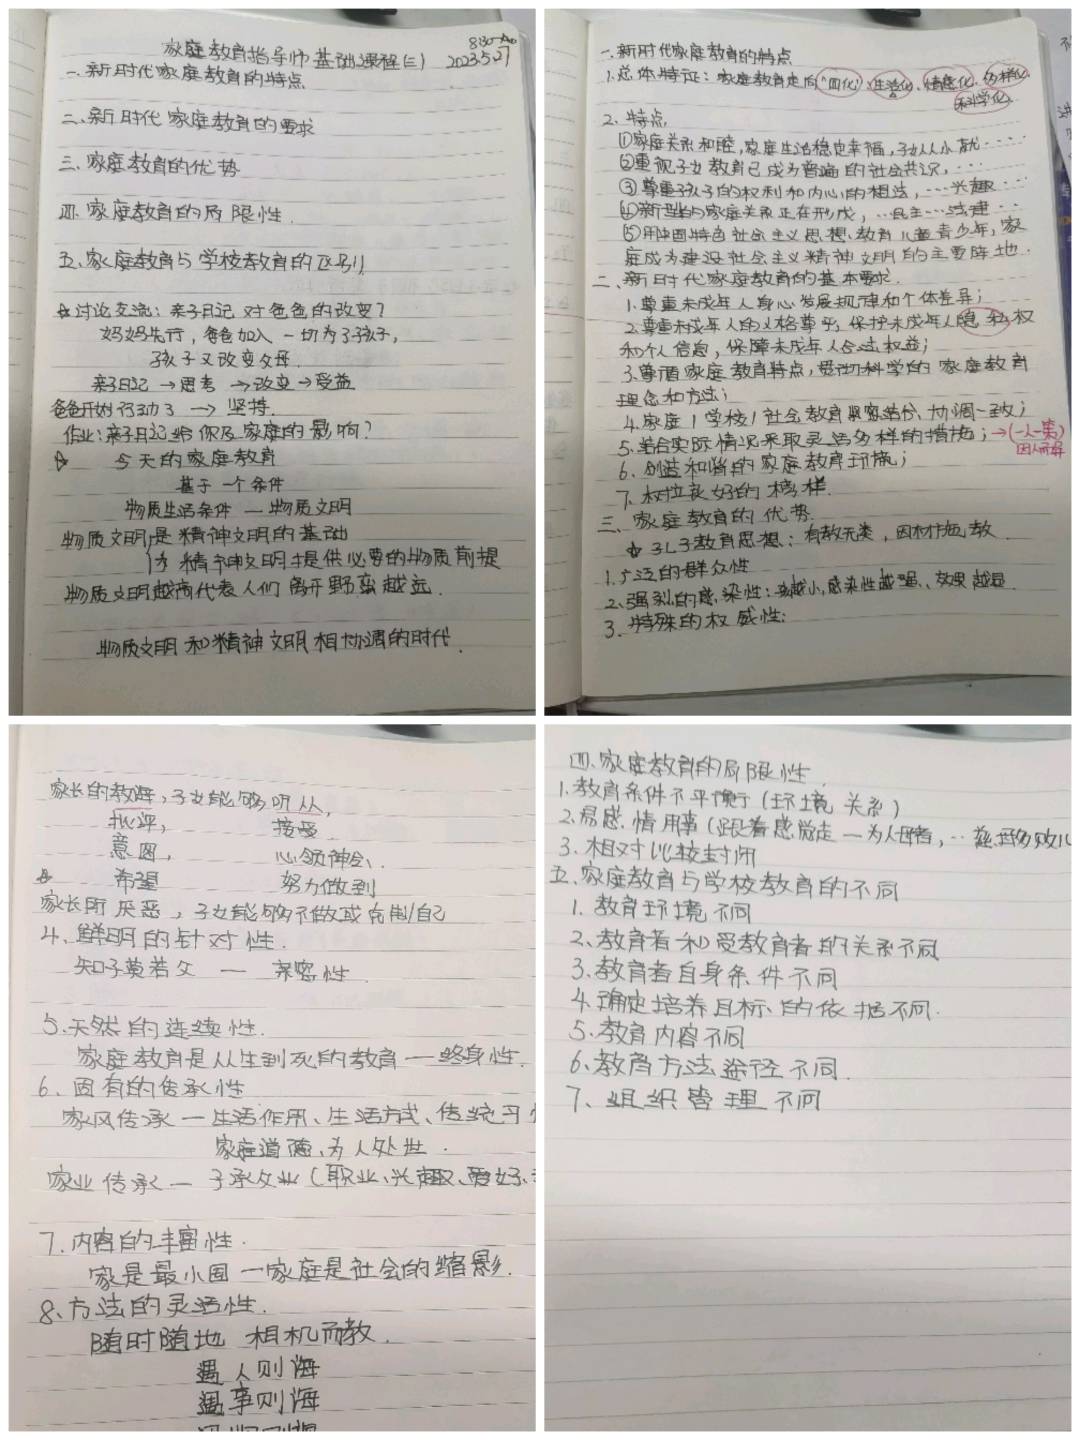 家庭教育指导师基础课程(三) 2023.5.27
一.新时代家庭教育的特点
二.新时代家庭教育的要求
三.家庭教育的优势
四.家庭教育的局限性
五.家庭教育与学校教育的区别
讨论交流:亲子日记对爸爸的改变?
妈妈先行,爸爸加入一切为了孩子,
孩子又改变父母.
亲子日记→思考→改变→受益
爸爸开始行动了→坚持.
作业:亲子日记给你及家庭的影响?
今天的家庭教育
基于一个条件
物质生活条件—物质文明
物质文明是精神文明的基础
为精神文明提供必要的物质前提
物质文明越高代表人们离开野蛮越远.
物质文明和精神文明相协调的时代.
一.新时代家庭教育的特点
1.总体特征:家庭教育走向"四化"、生活化、情感化、多样化、
科学化
2、特点
①家庭关系和睦,家庭生活稳定幸福,子女从小就····
②重视子女教育已成为普遍的社会共识,····
③尊重孩子的权利和内心的想法,···兴趣···
④新型的家庭关系正在形成,···民主···
⑤用中国特色社会主义思想、教育儿童青少年,家
庭成为建设社会主义精神文明的主要阵地.
二、新时代家庭教育的基本要求.
1.尊重未成年人身心发展规律和个体差异;
2.尊重未成年人的人格尊严,保护未成年人隐私权
和个人信息,保障未成年人合法权益;
3.尊循家庭教育特点,贯彻科学的家庭教育
理念和方法;
4.家庭/学校/社会教育紧密结合、协调一致;
5.结合实际情况采取灵活多样的措施;→(一人一策)
因人而异
6.创造和谐的家庭教育环境;
7.树立良好的榜样.
三、家庭教育的优势.
孔子教育思想:有教无类,因材施教
1.广泛的群众性
2.强烈的感染性:越小,感染性越强、效果越显
3.特殊的权威性:
家长的教诲,子女能够听从,
批评, 接受
意图, 心领神会、
希望 努力做到
家长所厌恶,子女能够不做或克制自己
4、鲜明的针对性.
知子莫若父—亲密性
5.天然的连续性.
家庭教育是从生到死的教育—终身性.
6、固有的传承性
家风传承—生活作风、生活方式、传统习
家庭道德、为人处世.
家业传承—子承父业(职业、兴趣、爱好、
7.内容的丰富性.
家是最小国—家庭是社会的缩影.
8、方法的灵活性.
随时随地 相机而教.
遇人则诲
遇事则诲
四.家庭教育的局限性
1.教育条件不平衡(环境 关系)
2.易感情用事(跟着感觉走—为人母者,··慈母多败儿
3.相对比较封闭
五.家庭教育与学校教育的不同
1.教育环境不同
2、教育者和受教育者的关系不同
3.教育者自身条件不同
4.确定培养目标的依据不同.
5.教育内容不同
6.教育方法途径不同.
7、组织管理不同